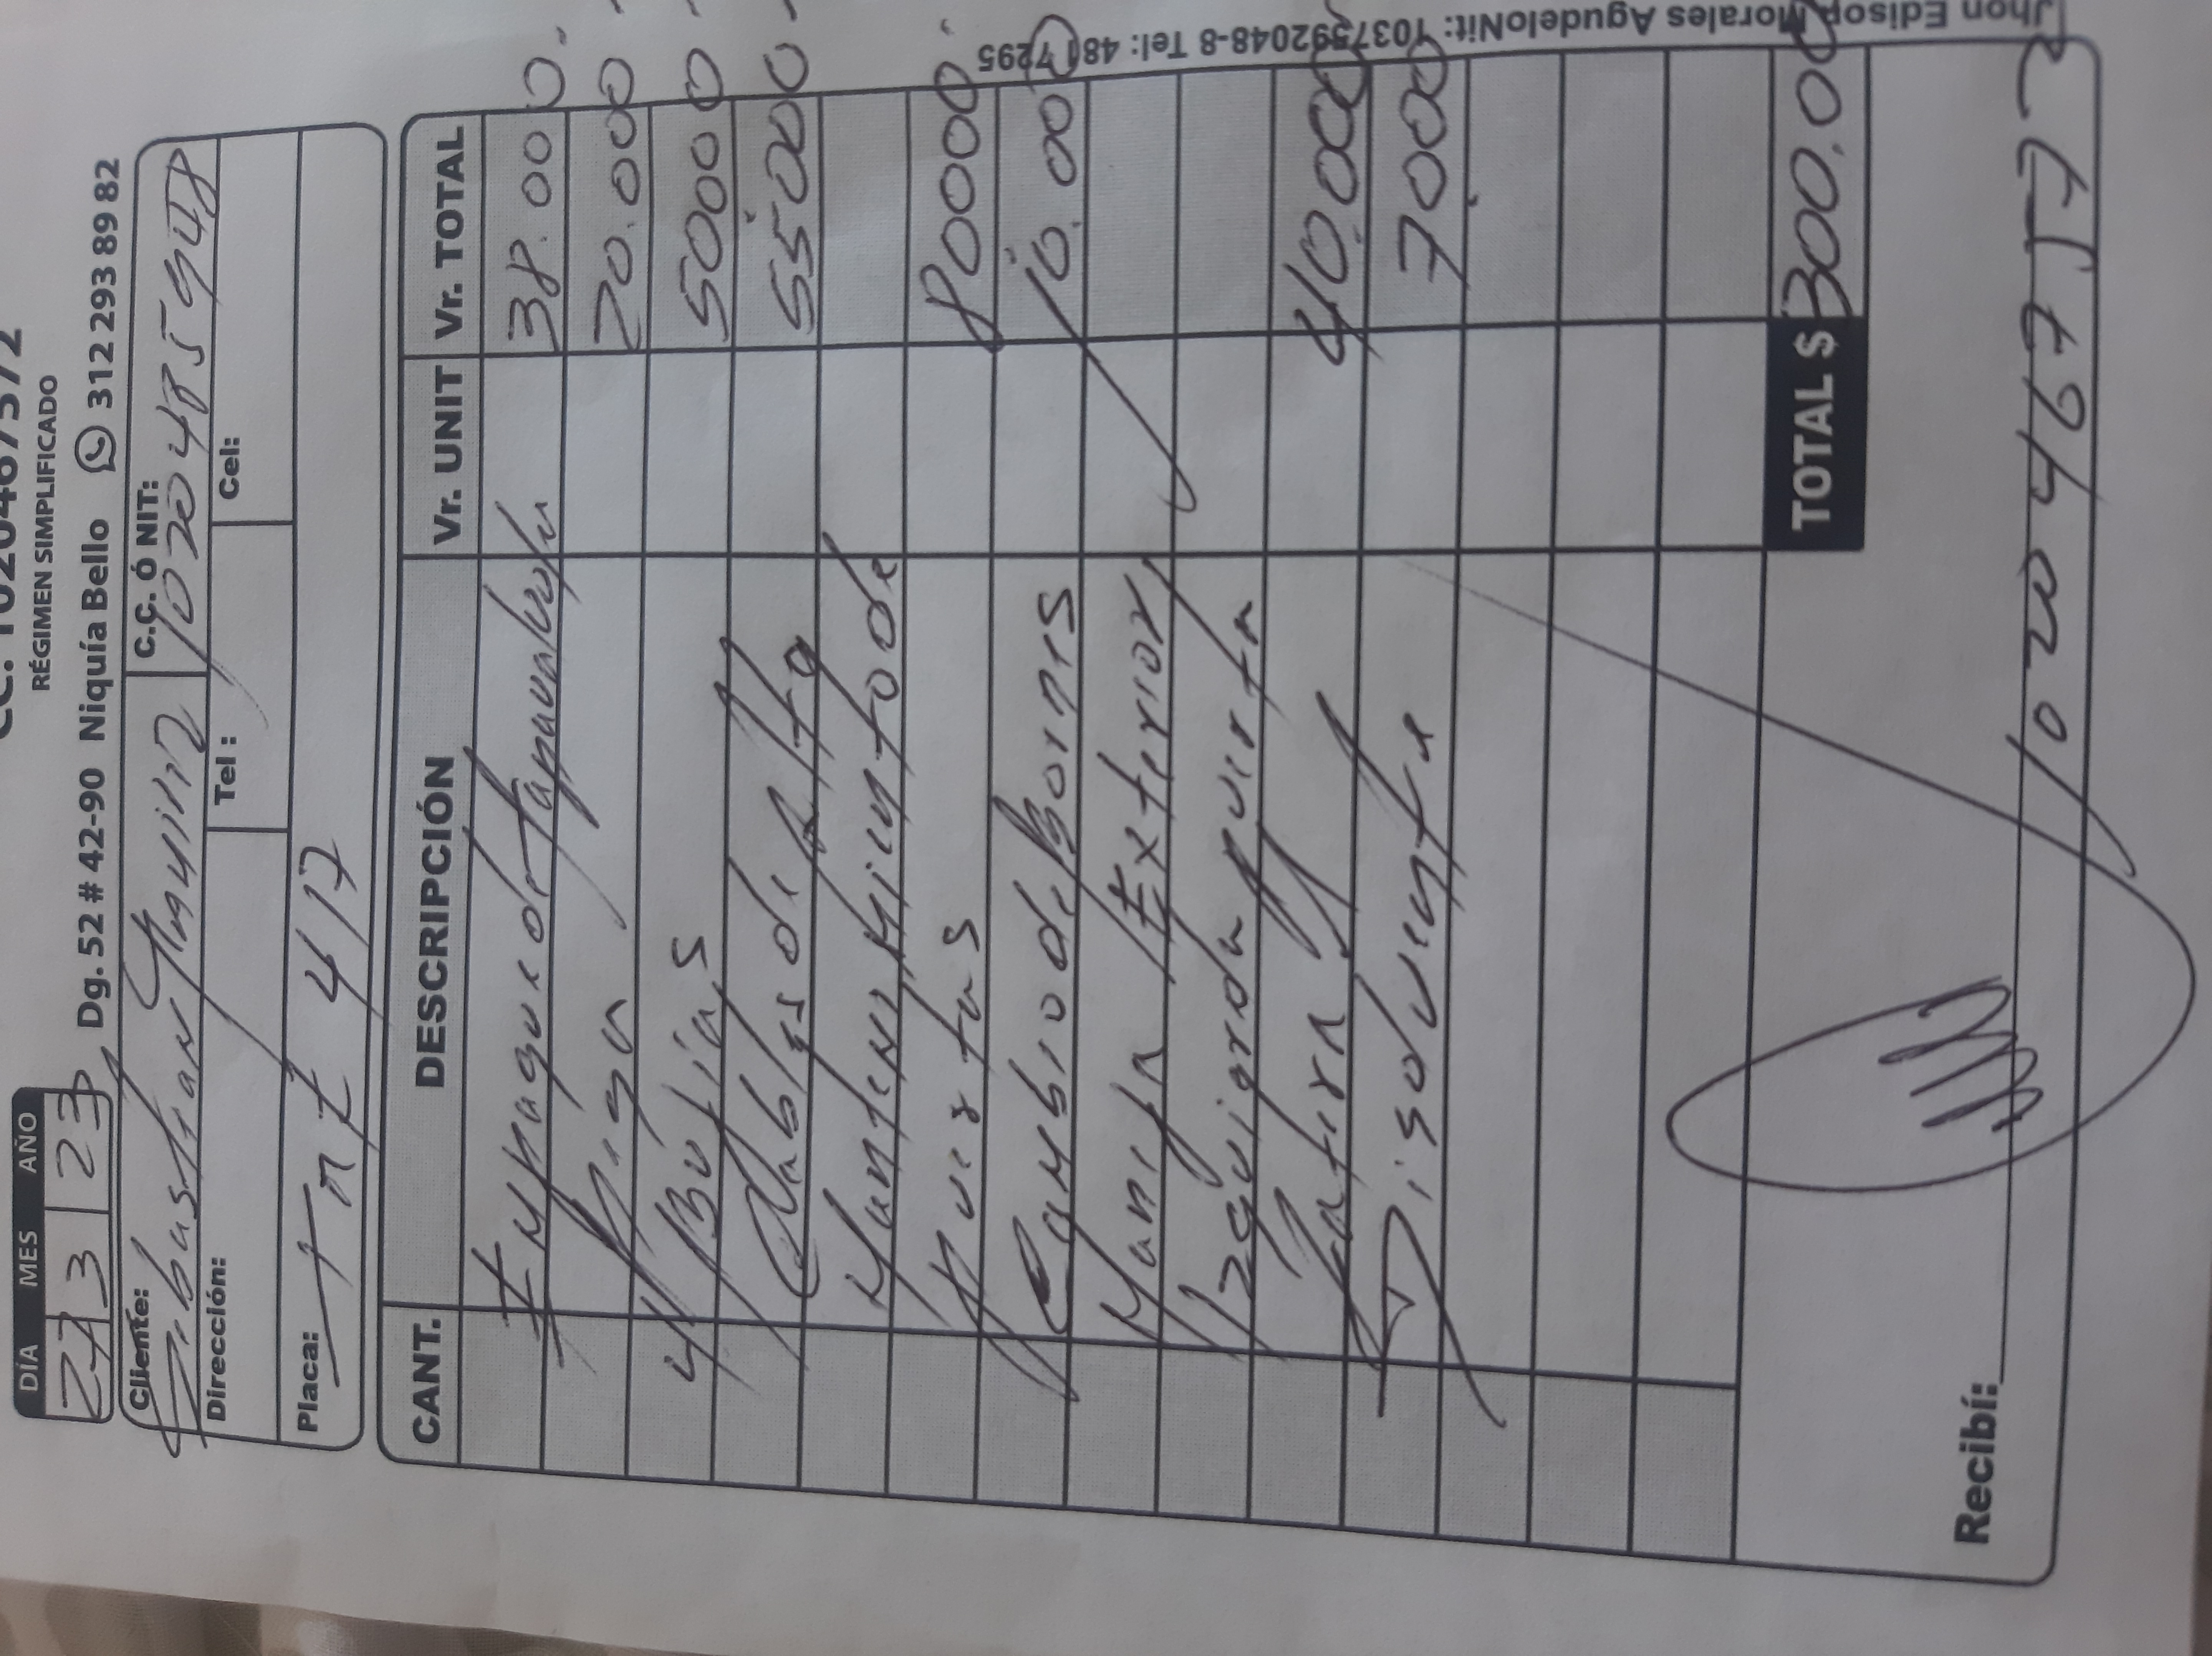 RÉGIMEN SIMPLIFICADO
Dg. 52 # 42-90 Niquía Bello 312 293 89 82
DÍA MES AÑO
27 3 23
Cliente: Sebastian C.C. Ó NIT: 1020485948
Dirección: Tel : Cel:
Placa: TnE 417
CANT. DESCRIPCIÓN Vr. UNIT Vr. TOTAL
Empaque de tapavalvula 38.000
Pega 20.000
4 Bujías 50000
Cables de Alta 55.000
Mantenimiento de
Puertas 80000
Cambio de Bornes 10.000
Manija Exterior
Izquierda puerta
Disolvente 7000
TOTAL $ 300.00
Recibí:
Jhon Edison Morales Agudelo Nit: 1037592048-8 Tel: 481 7295